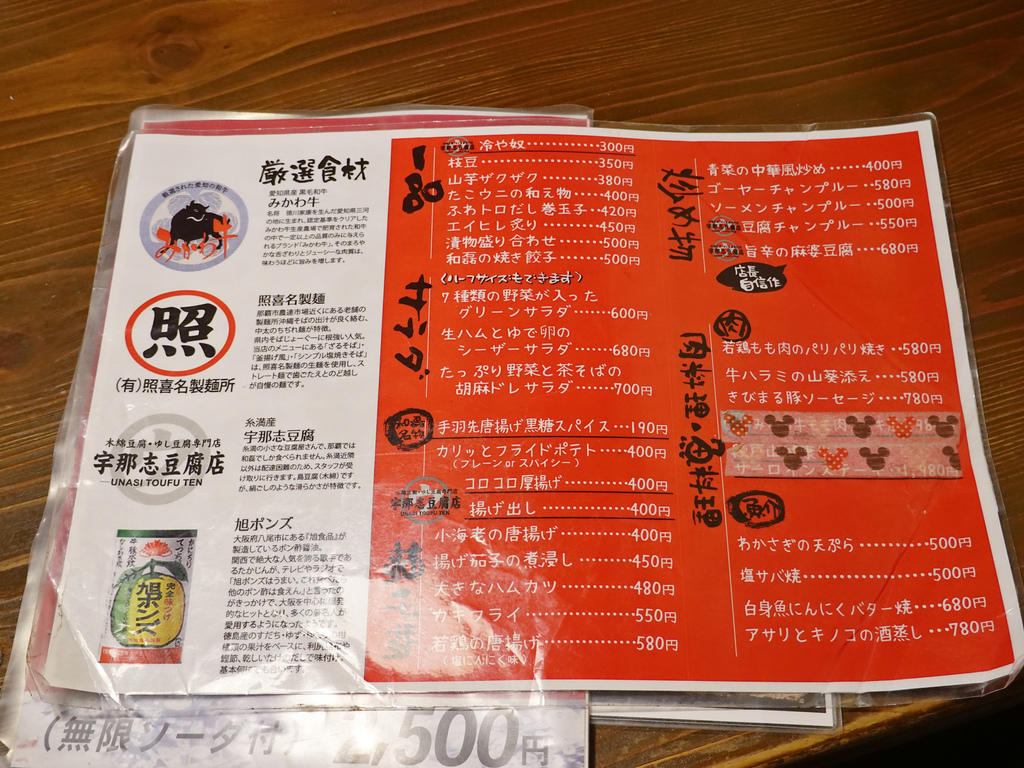 厳選食材
厳選された愛知の和牛
みかわ牛
愛知県産 黒毛和牛
みかわ牛
名将 徳川家康を生んだ愛知県三河
の地に生まれ、認定基準をクリアした
みかわ牛生産農場で肥育された和牛
の中で一定以上の品質のみに与えら
れるブランド「みかわ牛」。そのまろや
かな舌ざわりとジューシーな肉質は、
味わうほどに旨みを増します。
照
(有)照喜名製麺所
照喜名製麺
那覇市農連市場近くにある老舗の
製麺所沖縄そばの出汁が良く絡む、
中太のちぢれ麺が特徴。
県内そばじょーぐーに根強い人気。
当店のメニューにある「ざるそば」・
「釜揚げ風」・「シンプル塩焼きそば」
は、照喜名製麺の生麺を使用し、ス
トレート麺で歯ごたえとのど越し
が自慢の麺です。
木綿豆腐・ゆし豆腐専門店
宇那志豆腐店
UNASI TOUFU TEN
糸満産
宇那志豆腐
糸満の小さな豆腐屋さんで、那覇では
和磊でしか食べられません。糸満近隣
以外は配達困難のため、スタッフが受
け取りに行きます。島豆腐(木綿)です
が、絹ごしのような滑らかさが特徴です。
旭ポンズ
完全味つけ
旭ポンズ
大阪府八尾市にある『旭食品』が
製造しているポン酢醤油。
関西で絶大な人気を誇る歌手であ
るたかじんが、テレビやラジオで
「旭ポンズはうまい。これ食べたら
他のポン酢は食えん」と言ったの
がきっかけで、大阪を中心に爆発
的なヒットとなり、多くの著名人が
愛用するようになったようです。
徳島産のすだち・ゆず・
種類の果汁をベースに、利尻昆布や
鰹節、乾しいたけのだしで味付け。
基本何にでも合います。
一品
冷や奴…………300円
枝豆…………350円
山芋ザクザク…………380円
たこウニの和え物……400円
ふわトロだし巻玉子…420円
エイヒレ炙り…………450円
漬物盛り合わせ………500円
和磊の焼き餃子………500円
サラダ
(ハーフサイズもできます)
7種類の野菜が入った
グリーンサラダ………600円
生ハムとゆで卵の
シーザーサラダ………680円
たっぷり野菜と茶そばの
胡麻ドレサラダ………700円
和磊名物
手羽先唐揚げ黒糖スパイス…190円
カリッとフライドポテト………400円
(プレーン or スパイシー)
木綿豆腐・ゆし豆腐専門店
宇那志豆腐店
UNASI TOUFU TEN
コロコロ厚揚げ…………400円
揚げ出し…………400円
小海老の唐揚げ…………400円
揚げ茄子の煮浸し………450円
大きなハムカツ…………480円
カキフライ…………550円
若鶏の唐揚げ…………580円
(塩にんにく味)
炒め物
青菜の中華風炒め……400円
ゴーヤーチャンプルー…580円
ソーメンチャンプルー…500円
豆腐チャンプルー…550円
旨辛の麻婆豆腐……680円
店長自信作
肉料理・魚料理
肉
若鶏もも肉のパリパリ焼き…580円
牛ハラミの山葵添え……580円
きびまる豚ソーセージ……780円
魚介
わかさぎの天ぷら…………500円
塩サバ焼…………500円
白身魚にんにくバター焼…680円
アサリとキノコの酒蒸し…780円
(無限ソータ付) 2,500円